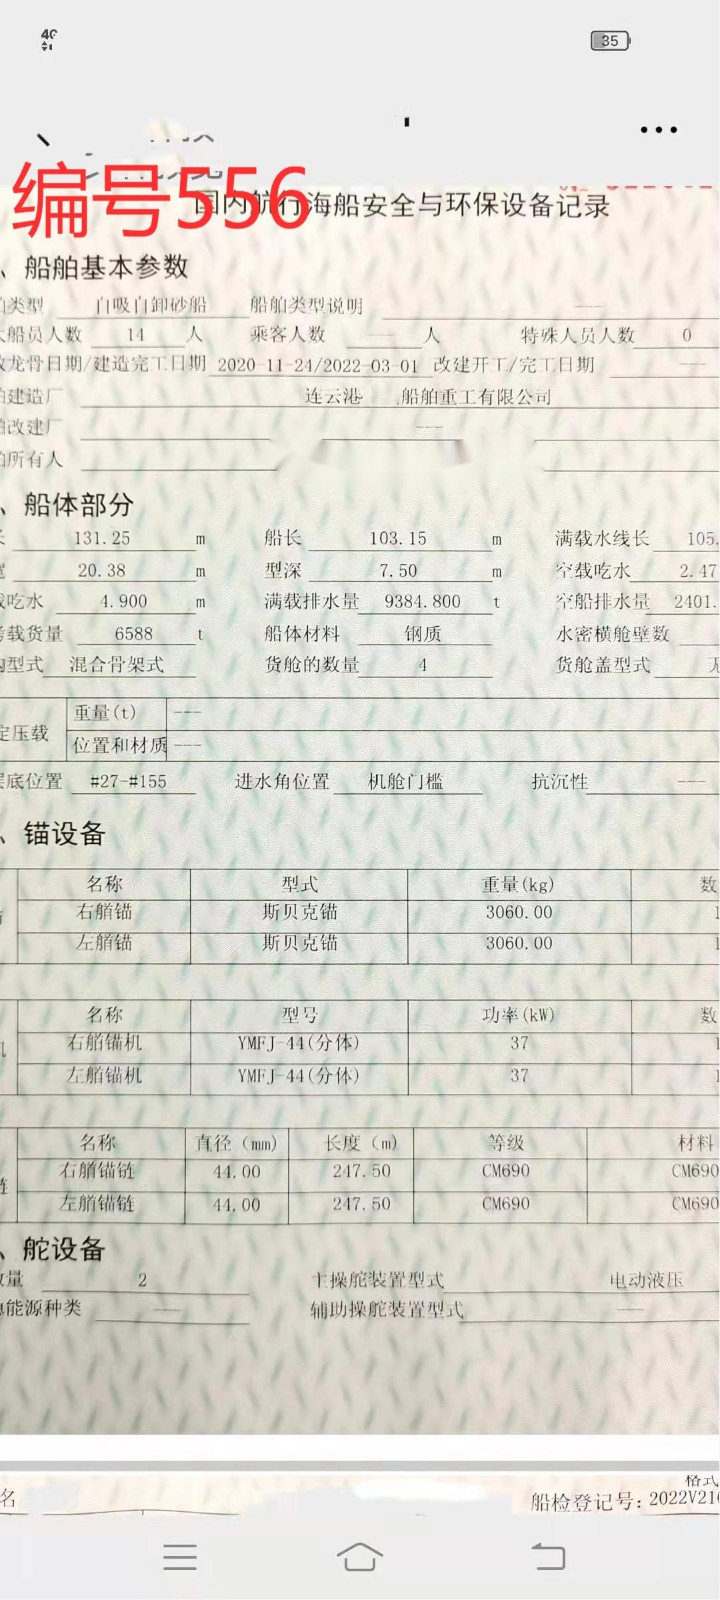 4G
35
编号556
国内航行海船安全与环保设备记录
、船舶基本参数
舶类型 自吸自卸砂船 船舶类型说明 ---
船员人数 14 人 乘客人数 --- 人 特殊人员人数 0
龙骨日期/建造完工日期 2020-11-24/2022-03-01 改建开工/完工日期 ---
舶建造厂 连云港 船舶重工有限公司
舶改建厂 ---
舶所有人
、船体部分
长 131.25 m 船长 103.15 m 满载水线长 105.
宽 20.38 m 型深 7.50 m 空载吃水 2.47
载吃水 4.900 m 满载排水量 9384.800 t 空船排水量 2401.
载货量 6588 t 船体材料 钢质 水密横舱壁数
构型式 混合骨架式 货舱的数量 4 货舱盖型式 无
定压载 重量(t) ---
位置和材质 ---
层底位置 #27-#155 进水角位置 机舱门槛 抗沉性 ---
、锚设备
名称 型式 重量(kg) 数
右艏锚 斯贝克锚 3060.00 1
左艏锚 斯贝克锚 3060.00 1
名称 型号 功率(kW) 数
机 右艏锚机 YMFJ-44(分体) 37 1
左艏锚机 YMFJ-44(分体) 37 1
名称 直径（mm） 长度（m） 等级 材料
链 右艏锚链 44.00 247.50 CM690 CM690
左艏锚链 44.00 247.50 CM690 CM690
、舵设备
数量 2 主操舵装置型式 电动液压
能源种类 --- 辅助操舵装置型式 ---
格式
名 船检登记号: 2022V210